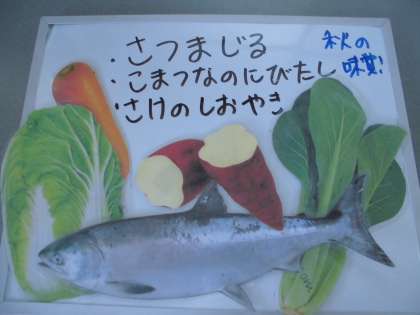 ・さつまじる
・こまつなのにびたし
・さけのしおやき
秋の
味覚!